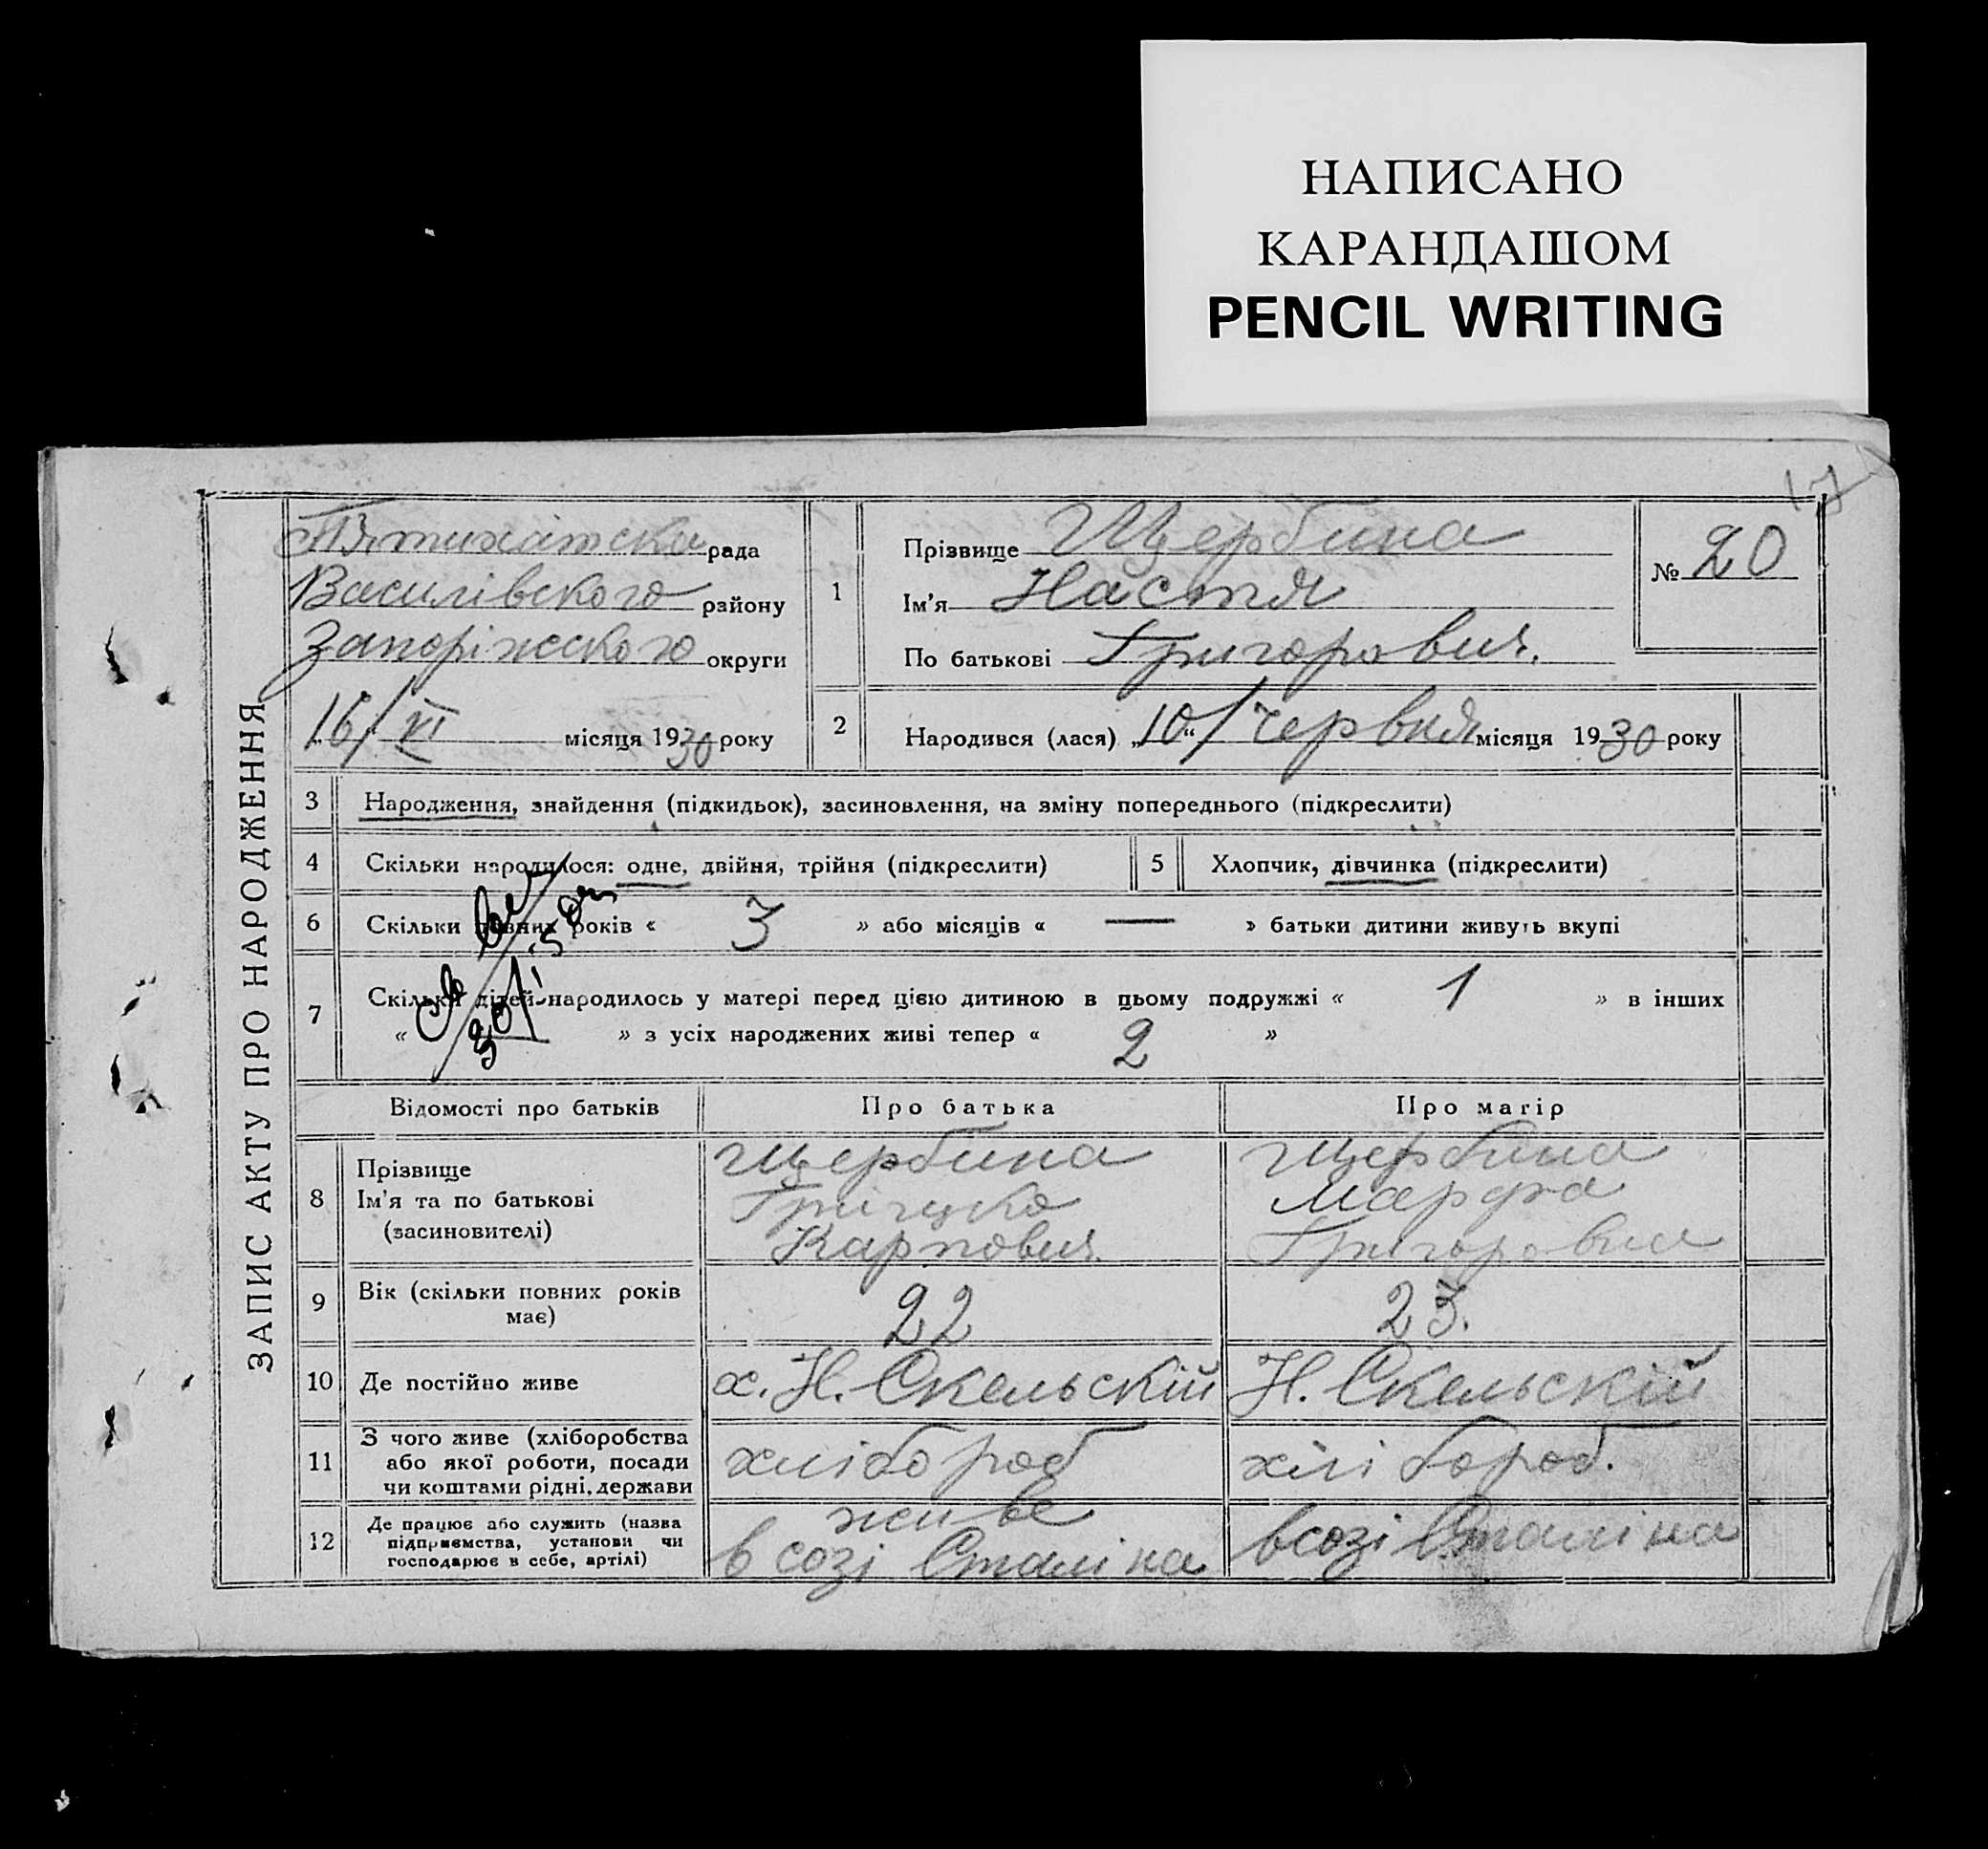 НАПИСАНО
КАРАНДАШОМ
PENCIL WRITING
17
ЗАПИС АКТУ ПРО НАРОДЖЕННЯ
Пятихатска рада
Василівського району
Запоріжського округи
16/VI місяця 1930 року
1
Прізвище Щербина
Ім'я Настя
По батькові Григоровия.
№ 20
2 Народився (лася) „10“/червня місяця 1930 року
3 Народження, знайдення (підкидьок), засиновлення, на зміну попереднього (підкреслити)
4 Скільки народилося: одне, двійня, трійня (підкреслити) 5 Хлопчик, дівчинка (підкреслити)
6 Скільки повних років « 3 » або місяців « — » батьки дитини живуть вкупі
7 Скільки дітей народилось у матері перед цією дитиною в цьому подружжі « 1 » в інших
« » з усіх народжених живі тепер « 2 »
Відомості про батьків Про батька Про матір
8 Прізвище Щербина Щербина
Ім'я та по батькові Грицько Марфа
(засиновителі) Карповия Григоровия
9 Вік (скільки повних років має) 22 23.
10 Де постійно живе х. Н. Скельскій Н. Скельскій
11 З чого живе (хліборобства
або якої роботи, посади хлібороб хлібороб.
чи коштами рідні, держави
12 Де працює або служить (назва живе
підприємства, установи чи в созі Сталіна в созі Сталіна
господарює в себе, артілі)